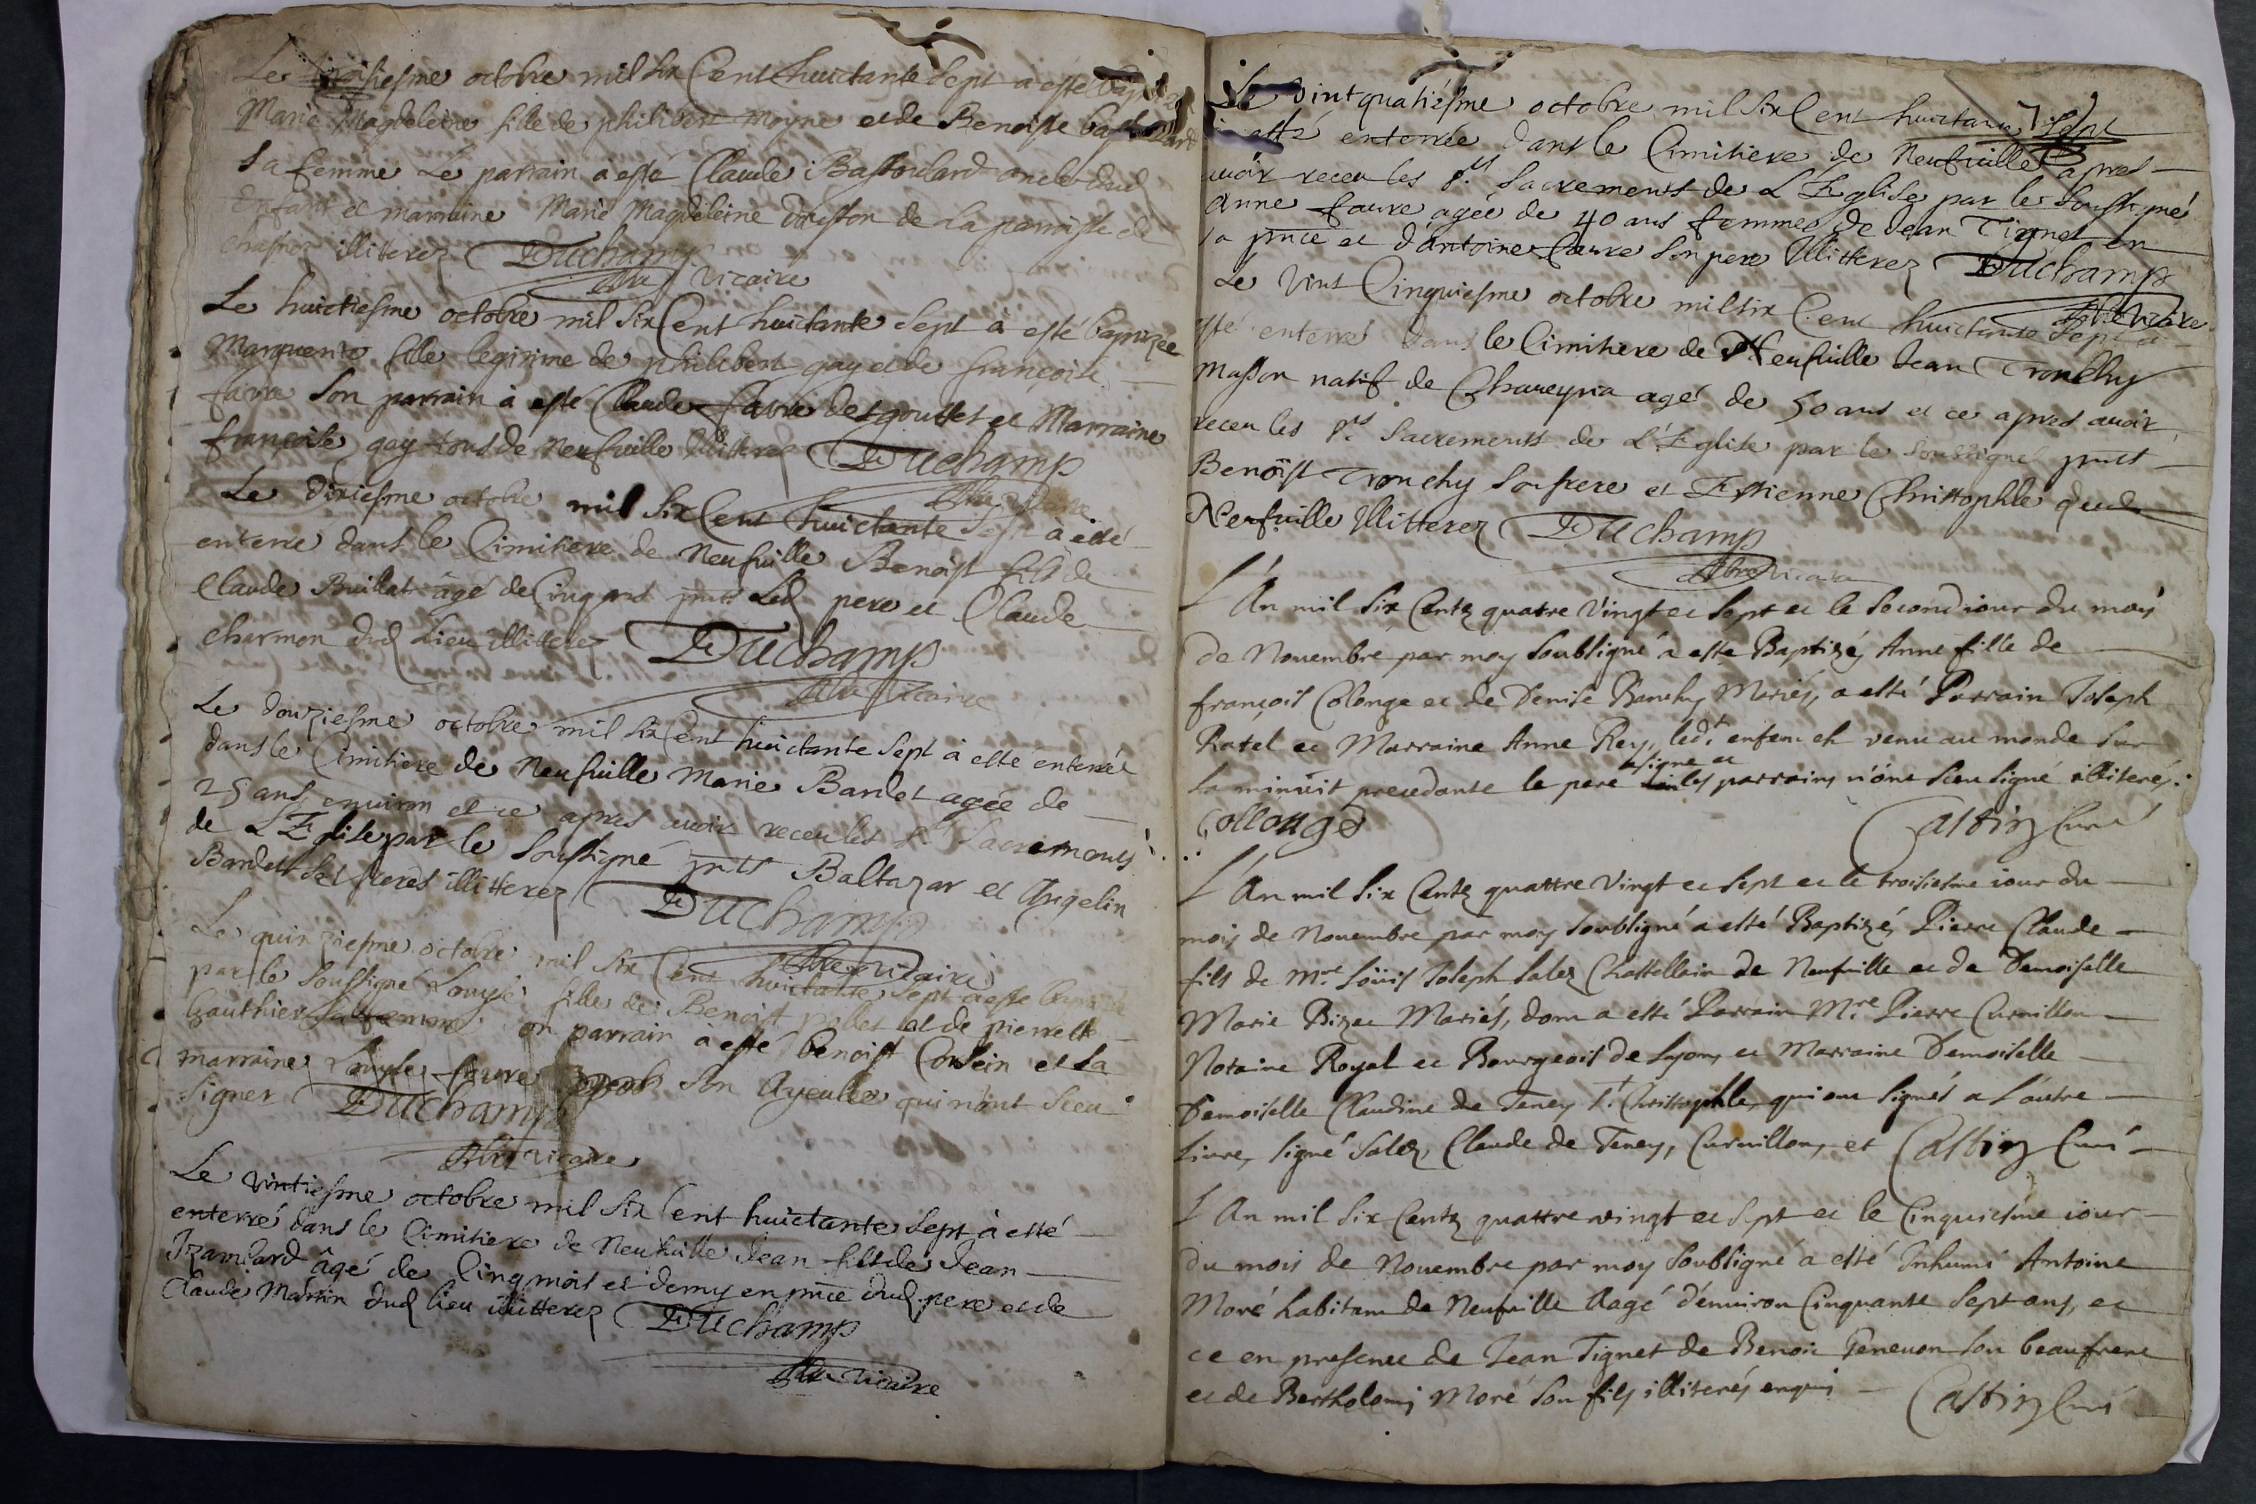 Le troisiesme octobre mil six Cent huictante Sept à esté baptizé
Marie Magdeleine fille de philibert moyne et de Benoiste bastoulard
Sa femme Le parrain à esté Claude Bastoulard oncle dud
Enfant et marraine Marie Magdeleine de la parroisse de
illiterez DUchamp
Vicaire
Le huictiesme octobre mil six Cent huictante Sept à esté baptizée
Marguerite fille legitime de philibert gay et de francoise
favre Son parrain à esté Claude favre desgouttes et Marraine
francoise gay tous de Neufville illitterez DUchamp
Le dixiesme octobre mil six Cent huictante Sept à esté
enterré dans le Cimitiere de Neufville Benoist fils de
Claude Buillat âgé de Cinq ans pnts Led pere et Claude
Charmon dud Lieu illitterez DUchamp
Vicaire
Le douziesme octobre mil six Cent huictante Sept à esté enterrée
dans le Cimitiere de Neufville Marie Bardet agée de
25 ans environ et ce apres avoir receu les Sts Sacrements
de L'Eglise par le Soussigné pnts Baltazar et Angelin
Bardet Ses freres illitterez DUchamp
Vicaire
Le quinziesme octobre mil six Cent huictante Sept a esté
par le Soussigné Louyse fille de Benoist pollet et de pierrette
Gauthier Sa femme on parrain à esté benoist Cosein et la
marraine Louyse favre Son Ayeulle qui n'ont Sceu
Signer DUchamp
Vicaire
Le vintiesme octobre mil Six Cent huictante Sept à esté
enterré dans le Cimitiere de Neufville Jean fils de Jean
Izambard âgé de Cinq mois et demy en pnce dud pere et de
Claude Martin dud lieu illitterez DUchamp
Vicaire
Le Vint quatiesme octobre mil Six Cent huictante Sept
esté enterrée dans le Cimitiere de Neufville apres
avoir receu les Sts Sacrements de L'Eglise par le Soussigné
Anne favre agée de 40 ans femme de Jean Tignet en
sa pnce et d'Antoine favre Son pere Illitterez DUchamp
Vicaire
Le Vint Cinquiesme octobre mil six Cent huictante Sept a
esté enterré dans le Cimitiere de Neufville Jean Tronchy
Masson natif de Chaveyria agé de 50 ans et ce apres avoir
receu les Sts Sacrements de L'Eglise par le Soussigné pnts
Benoist Tronchy Son frere et Estienne Christophle dud
Neufville Illitterez DUchamp
Vicaire
L'An mil Six Centz quatre Vingt et Sept et le Second iour du mois
de Novembre par moy Soubsigné a esté Baptizé, Anne fille de
François Colonge et de Denise Banchy Mariés, a esté Parrain Joseph
Ratel et Marraine Anne Rey, led.t enfant est venu au monde Sur
La minuit precedante le pere a signé et les parrains n'ont Sceu signé illiterés.
Collonge Castin Curé
L'An mil Six Centz quattre Vingt et Sept et le troisiesme iour du
mois de Novembre par moy Soubsigné a esté Baptizé, Pierre Claude
fils de Mre Loüis Joseph Salez Chastellain de Neufville et de Demoiselle
Marie Bizet Mariés, dont a esté Parrain M.re Pierre Curnillon
Notaire Royal et Bourgeois de Lyon, et Marraine Demoiselle
Demoiselle Claudine de Teney St. Christophle, qui ont Signés a L'autre
Livre, Signé Salez, Claude de Teney, Curnillon, et Castin Curé
L'An mil Six Centz quattre vingt et Sept et le Cinquiesme iour
du mois de Novembre par moy Soubsigné a esté Inhumé Antoine
Moré habitant de Neufville Aagé d'environ Cinquante Sept ans, et
ce en presence de Jean Tignet de Benoit Genevon Son beaufrere
et de Bertholomy Moré Son fils illiterés enquis Castin Curé